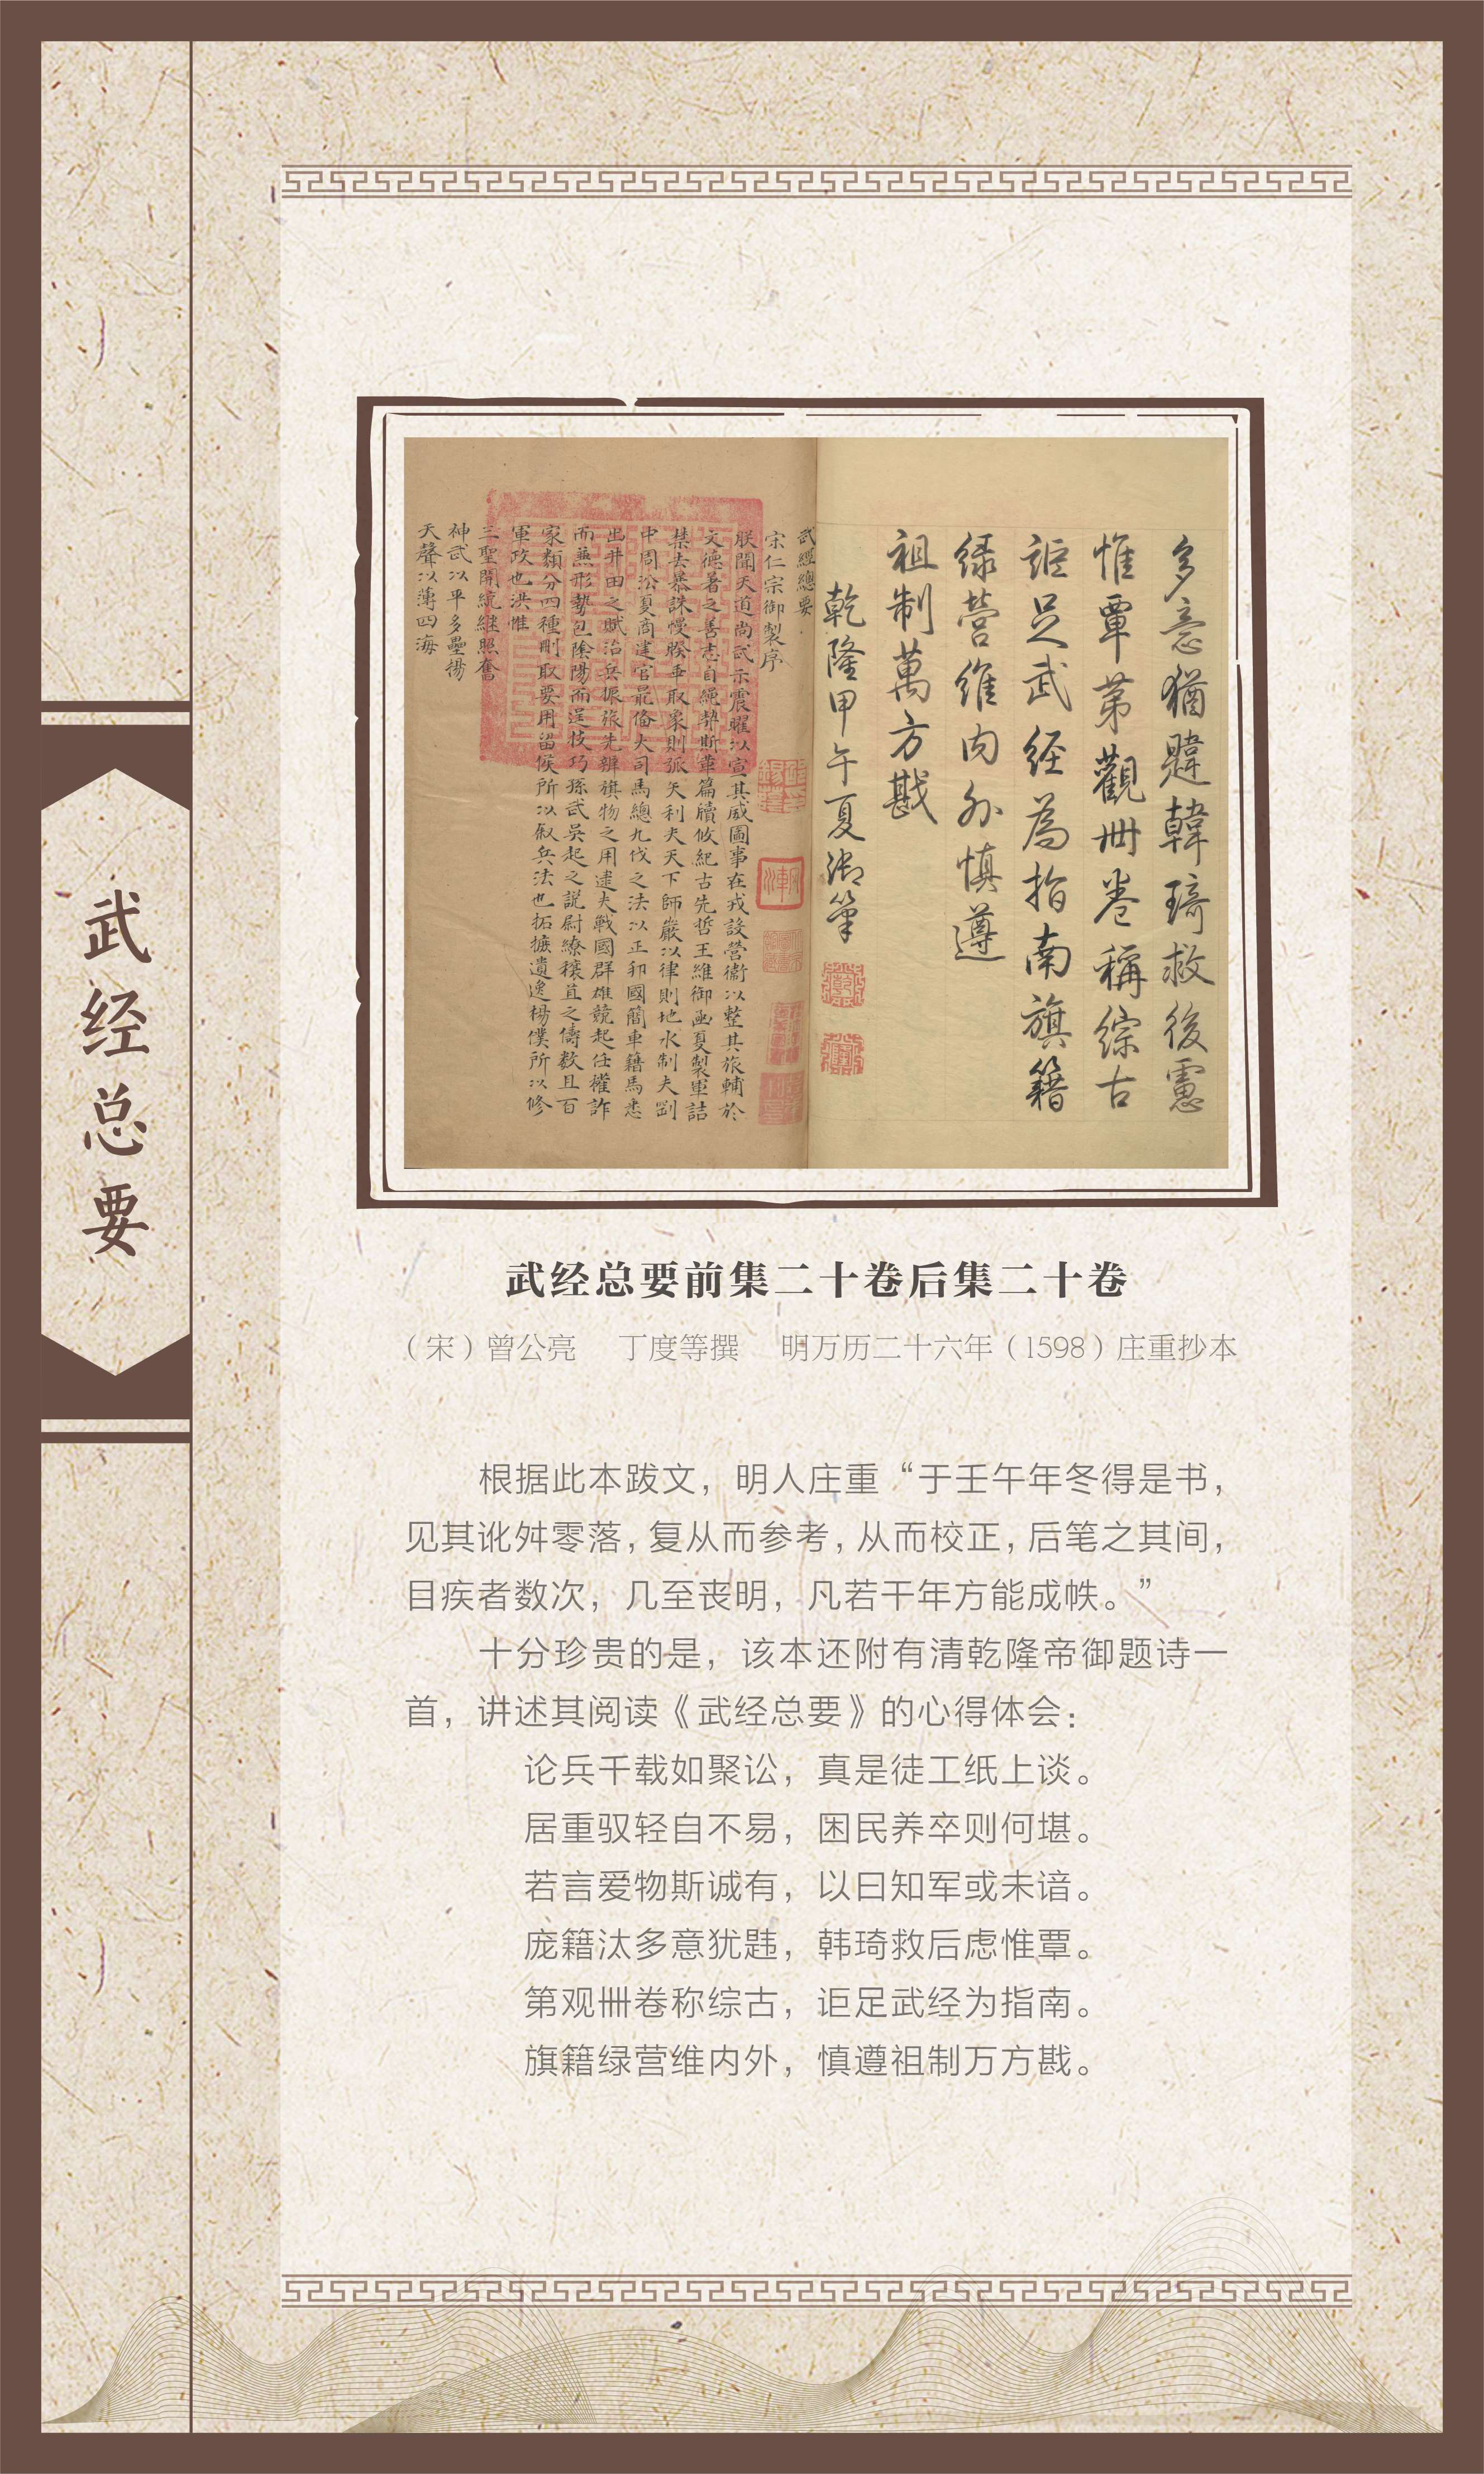 武经总要
多意猶韙韓琦救後慮
惟覃第觀卌卷稱綜古
詎足武經為指南旗籍
綠營維内外慎遵
祖制萬方戡
乾隆甲午夏御筆
武經總要
宋仁宗御製序
朕聞天道尚武示震曜以宣其威圖事在戎設營衞以整其旅輔於
文德著之善志自繩契斯華篇牘攸紀古先哲王維御函夏製軍詰
禁去暴誅慢睽乖取象則弧矢利夫天下師嚴以律則地水制夫劉
中周沿夏商建官最俻大司馬總九伐之法以正邦國簡車籍馬悉
出井田之賦治兵振旅先辨旗物之用逮夫戰國群雄競起任權詐
而蕪形勢包陰陽而逞技巧孫武吳起之説尉繚穰苴之儔数且百
家類分四種刪取要用留侯所以叙兵法也拓摭遺逸楊僕所以修
軍政也洪惟
三聖開統継照奮
神武以平多壘揚
天聲以薄四海
武经总要前集二十卷后集二十卷
（宋）曾公亮 丁度等撰 明万历二十六年（1598）庄重抄本
根据此本跋文，明人庄重“于壬午年冬得是书，
见其讹舛零落，复从而参考，从而校正，后笔之其间，
目疾者数次，几至丧明，凡若干年方能成帙。”
十分珍贵的是，该本还附有清乾隆帝御题诗一
首，讲述其阅读《武经总要》的心得体会：
论兵千载如聚讼，真是徒工纸上谈。
居重驭轻自不易，困民养卒则何堪。
若言爱物斯诚有，以曰知军或未谙。
庞籍汰多意犹韪，韩琦救后虑惟覃。
第观卌卷称综古，讵足武经为指南。
旗籍绿营维内外，慎遵祖制万方戡。